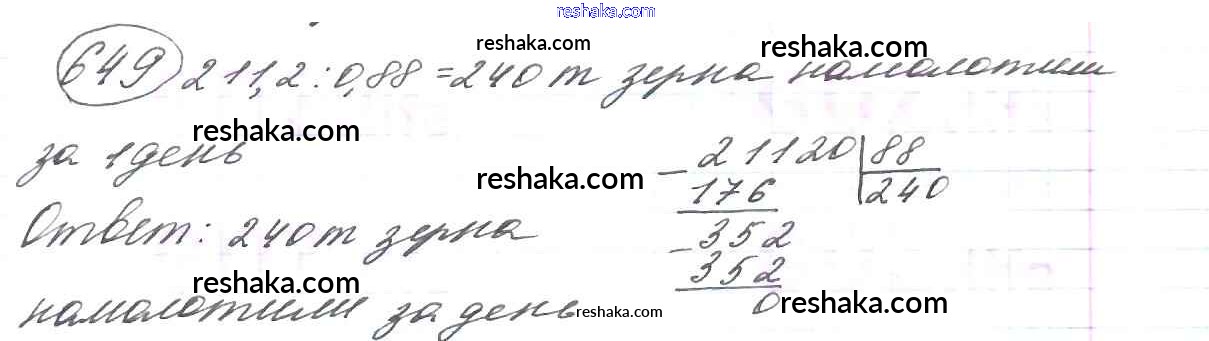 reshaka.com
reshaka.com reshaka.com
649 211,2 : 0,88 = 240 т зерна намолотили
reshaka.com
за 1 день
reshaka.com
21120 | 88
- 176 240
Ответ: 240 т зерна
- 352
352
0
reshaka.com
намолотили за день
reshaka.com
reshaka.com